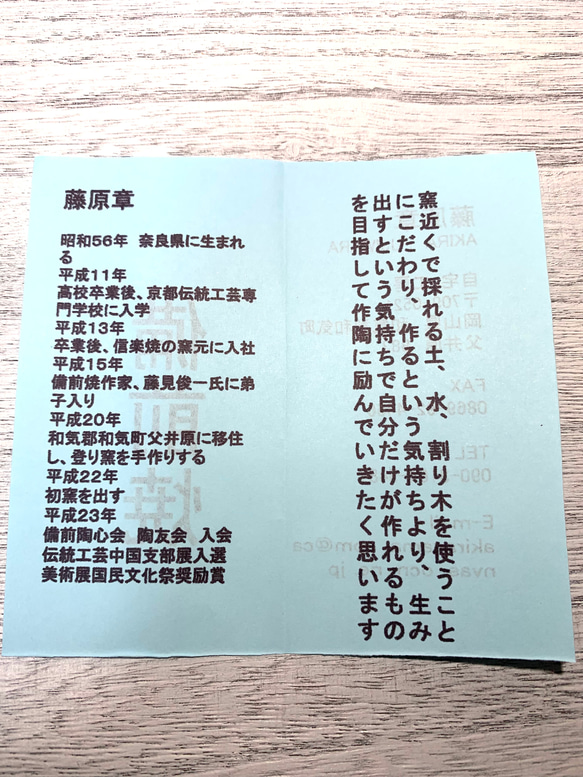 藤原章
昭和56年 奈良県に生まれ
る
平成11年
高校卒業後、京都伝統工芸専
門学校に入学
平成13年
卒業後、信楽焼の窯元に入社
平成15年
備前焼作家、藤見俊一氏に弟
子入り
平成20年
和気郡和気町父井原に移住
し、登り窯を手作りする
平成22年
初窯を出す
平成23年
備前陶心会 陶友会 入会
伝統工芸中国支部展入選
美術展国民文化祭奨励賞
窯近くで採れる土、水、割り木を使うこと
にこだわり、作るという気持ちより、生み
出すという気持ちで自分だけが作れるもの
を目指して作陶に励んでいきたく思います
備前焼